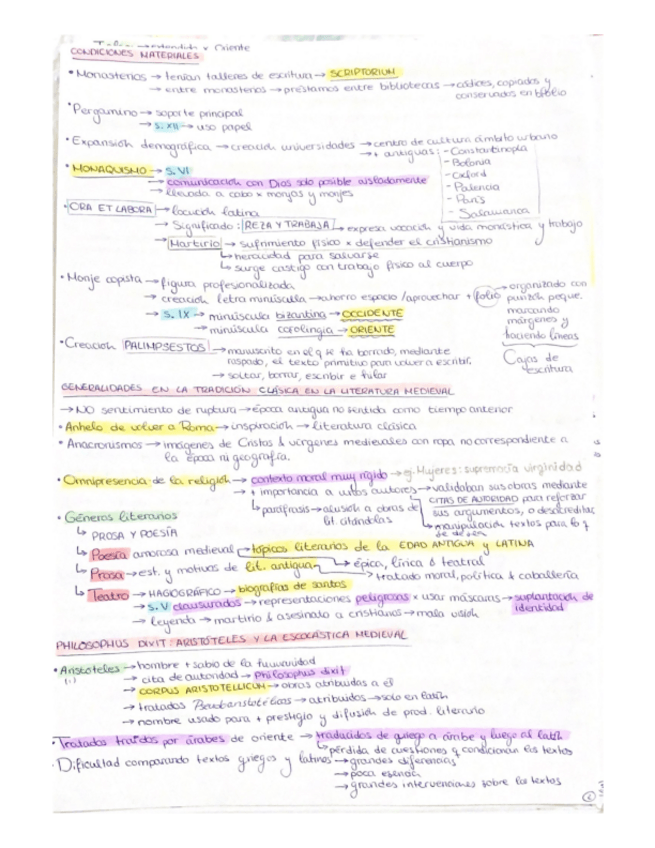 → extendido x Oriente
CONDICIONES MATERIALES
• Monasterios → tenían talleres de escritura → SCRIPTORIUM
→ entre monasterios → préstamos entre bibliotecas → códices, copiados y
conservados en
• Pergamino → soporte principal
→ S. XII → uso papel
• Expansión demográfica → creación universidades → centro de cultura ámbito urbano
→ + antiguas:
- Constantinopla
- Bolonia
- Oxford
- Palencia
- París
- Salamanca
• MONAQUISMO → S. VI
→ comunicación con Dios solo posible aisladamente
→ llevada a cabo x monjas y monjes
• ORA ET LABORA → locución latina
→ Significado: REZA Y TRABAJA → expresa vocación y vida monástica y trabajo
→ Martirio → sufrimiento físico x defender el cristianismo
↳ heroicidad para salvarse
↳ surge castigo con trabajo físico al cuerpo
• Monje copista → figura profesionalizada
→ creación letra minúscula → ahorro espacio / aprovechar + folio
→ organizado con
punzón peque.
marcando
márgenes y
haciendo líneas
Cajas de
escritura
→ S. IX → minúscula bizantina → OCCIDENTE
→ minúscula carolingia → ORIENTE
• Creación PALIMPSESTOS → manuscrito en el q se ha borrado, mediante
raspado, el texto primitivo para volver a escribir.
→ soltar, borrar, escribir e
GENERALIDADES EN LA TRADICIÓN CLÁSICA EN LA LITERATURA MEDIEVAL
→ NO sentimiento de ruptura → época antigua no sentida como tiempo anterior
• Anhelo de volver a Roma → inspiración → literatura clásica
• Anacronismos → imágenes de Cristos & vírgenes medievales con ropa no correspondiente a
la época ni geografía.
• Omnipresencia de la religión → contexto moral muy rígido → ej. Mujeres: supremacía virginidad
→ + importancia a unos autores → validaban sus obras mediante
CITAS DE AUTORIDAD para reforzar
sus argumentos, o desacreditar
↳ manipulación textos para
↳ paráfrasis → alusión a obras de
lit. citándolas
• Géneros literarios
↳ PROSA Y POESÍA
↳ Poesía amorosa medieval → tópicos literarios de la EDAD ANTIGUA y LATINA
↳ Prosa → est. y motivos de lit. antigua → épica, lírica & teatral
→ tratado moral, política & caballería
↳ Teatro → HAGIOGRÁFICO → biografías de santos
→ S. V clausurados → representaciones peligrosas x usar máscaras → suplantación de
identidad
→ leyenda → martirio & asesinato a cristianos → mala visión
PHILOSOPHUS DIXIT: ARISTÓTELES Y LA ESCOLÁSTICA MEDIEVAL
• Aristóteles → hombre + sabio de la humanidad
→ cita de autoridad → Philosophus dixit
→ CORPUS ARISTOTELLICUM → obras atribuidas a él
→ tratados Pseudoaristotélicos → atribuidos → solo en latín
→ nombre usado para + prestigio y difusión de prod. literario
• Tratados traídos por árabes de oriente → traducidos de griego a árabe y luego al latín
↳ pérdida de cuestiones q condicionan los textos
• Dificultad comparando textos griegos y latinos → grandes diferencias
→ poca esencia
→ grandes intervenciones sobre los textos